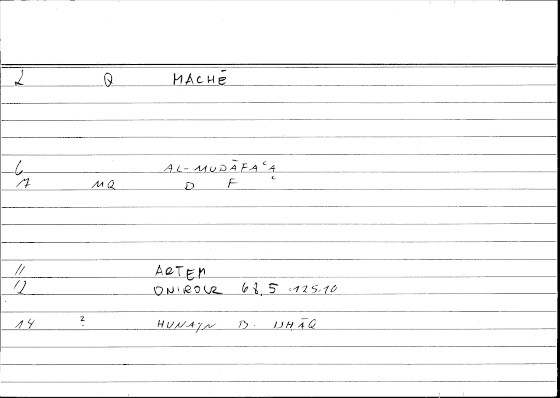 2 Q MACHĒ
6 AL-MUDĀFAʿA
7 MQ D F
11 ARTEM
12 ONIROCR 68,5 · 125.10
14 ? HUNAYN B. ISHĀQ